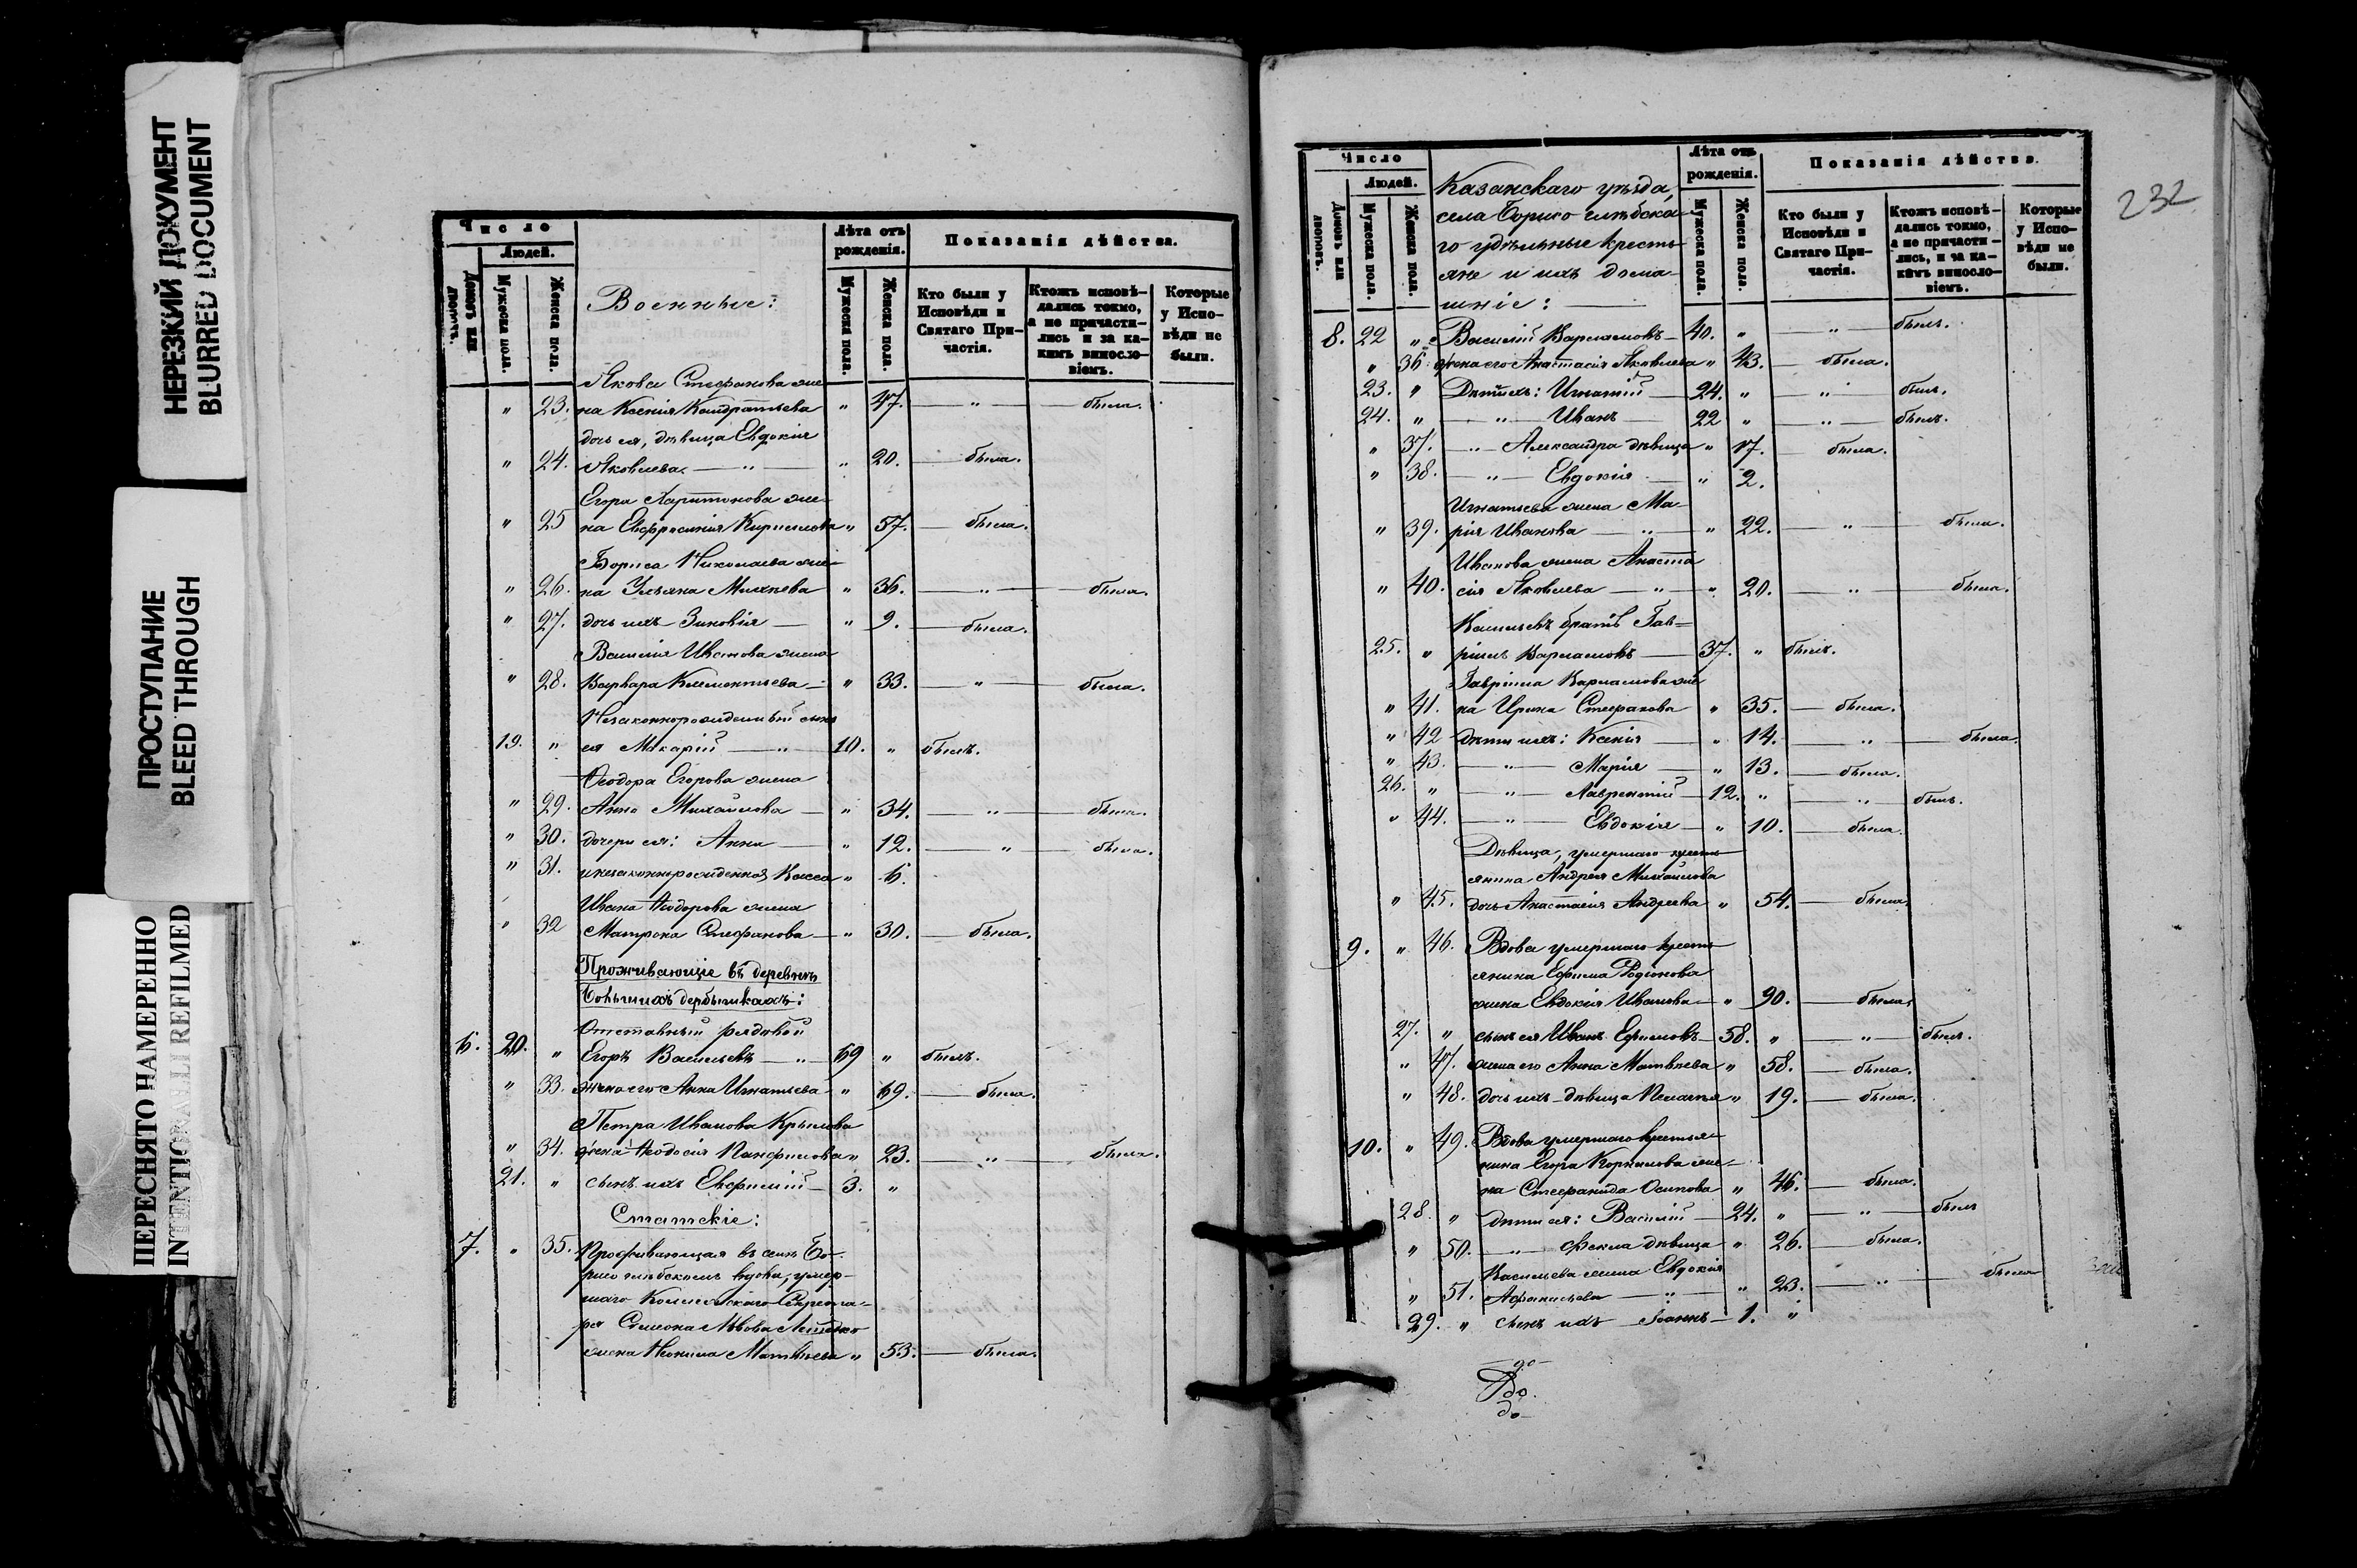 НЕРЕЗКИЙ ДОКУМЕНТ
BLURRED DOCUMENT
ПРОСТУПАНИЕ
BLEED THROUGH
ПЕРЕСНЯТО НАМЕРЕННО
INTENTIONALLI REFILMED
Число
Людей.
Домовъ или дворовъ.
Мужеска пола.
Женска пола.
Военные:
Лѣта отъ рожденія.
Мужеска пола.
Женска пола.
Показанія дѣйства.
Кто были у Исповѣди и Святаго Причастія.
Ктожъ исповѣ-
дались токмо,
а не причасти-
лись и за ка-
кимъ виносло-
віемъ.
Которые
у Испо-
вѣди не
были.
Якова Стефанова же-
" 23. на Ксенія Кондратьева " 47. — " — была.
дочь ея, дѣвица Евдокія
" 24. Яковлева — " — " 20. — была.
Егора Харитонова же-
" 25 на Евфросинія Кирилова " 57. — была.
Бориса Николаева же-
" 26. на Ульяна Михеева " 36. — " — была.
" 27. дочь ихъ Зиновія — " 9. — была.
Василія Иванова жена
" 28. Варвара Клементьева — " 33. — " — была.
Незаконнорожденный сынъ
19. " ея Макарій — " — 10. " былъ.
Ѳеодора Егорова жена
" 29. Анна Михайлова — " 34. — " — была.
" 30. дочери ея: Анна — " 12. — " — была.
" 31. и незаконнорожденная " 6.
Ивана Ѳеодорова жена
" 32 Матрона Стефанова — " 30. — была.
Проживающіе въ деревнѣ
Большихъ дербышкахъ:
Отставный рядовой
6. 20. " Егоръ Васильевъ — " — 69 " былъ.
" 33. жена его Анна Игнатьева — " 69. — была.
Петра Иванова Крылова
" 34. жена Ѳеодосія Панфилова " 23. — " — была.
21. " сынъ ихъ Евфимій — 3. "
Статскіе:
7. " 35. Проживающая въ селѣ Бо-
рисоглѣбскомъ вдова, умер-
шаго Коллежскаго Секрета-
ря Симеона Львова
жена Неонила Матвѣева " 53. — была.
232
Число
Людей.
Домовъ или дворовъ.
Мужеска пола.
Женска пола.
Казанскаго уѣзда
села Борисоглѣбска-
го удѣльные кресть-
яне и ихъ дома-
шніе: —
Лѣта отъ рожденія.
Мужеска пола.
Женска пола.
Показанія дѣйства.
Кто были у Исповѣди и Святаго Причастія.
Ктожъ исповѣ-
дались токмо,
а не причасти-
лись, и за ка-
кимъ виносло-
віемъ.
Которые
у Испо-
вѣди не
были.
8. 22 " Василій Варламовъ — 40. " — " — былъ.
" 36. жена его Анастасія Яковлева " 43. — была.
23. " Дѣти ихъ: Игнатій — 24. " — " — былъ.
24. " — " — Иванъ — 22 " — " — былъ.
" 37. — " — Александра дѣвица " 17. — была.
" 38. — " — Евдокія — " 2.
Игнатьева жена Ма-
" 39. рія Иванова — " — " 22. — " — была.
Иванова жена Анаста
" 40. сія Яковлева — " — " 20. — " — была.
Васильевъ братъ Гав-
25. " ріилъ Варламовъ — 37. " былъ.
Гавріила Варламова же-
" 41. на Ирина Стефанова " 35. — была.
" 42 дѣти ихъ: Ксенія — " 14. — " — была.
" 43. — " — Марія — " 13. — была.
26. " — " — Лаврентій — 12. " — " — былъ.
" 44. — " — Евдокія — " 10. — была.
Дѣвица, умершаго кресть-
янина Андрея Михайлова
" 45. дочь Анастасія Андреева " 54. — была.
9. " 46. Вдова умершаго кресть-
янина Ефима Родіонова
жена Евдокія Иванова — " 90. — была.
27. " сынъ ея Иванъ Ефимовъ — 58. " — " — былъ.
" 47. жена его Анна Матвѣева " 58. — была.
" 48. дочь ихъ — дѣвица Пелагея " 19. — была.
10. " 49. Вдова умершаго крестья-
нина Егора Корнилова же-
на Стефанида Осипова " 46. — была.
28. " дѣти ея: Василій — 24. " — " — былъ
" 50. — " — Ѳекла дѣвица " 26. — была.
Васильева жена Евдокія
" 51. Афанасьева — " — " 23. — " — была
29. " сынъ ихъ — Іоаннъ — 1. "